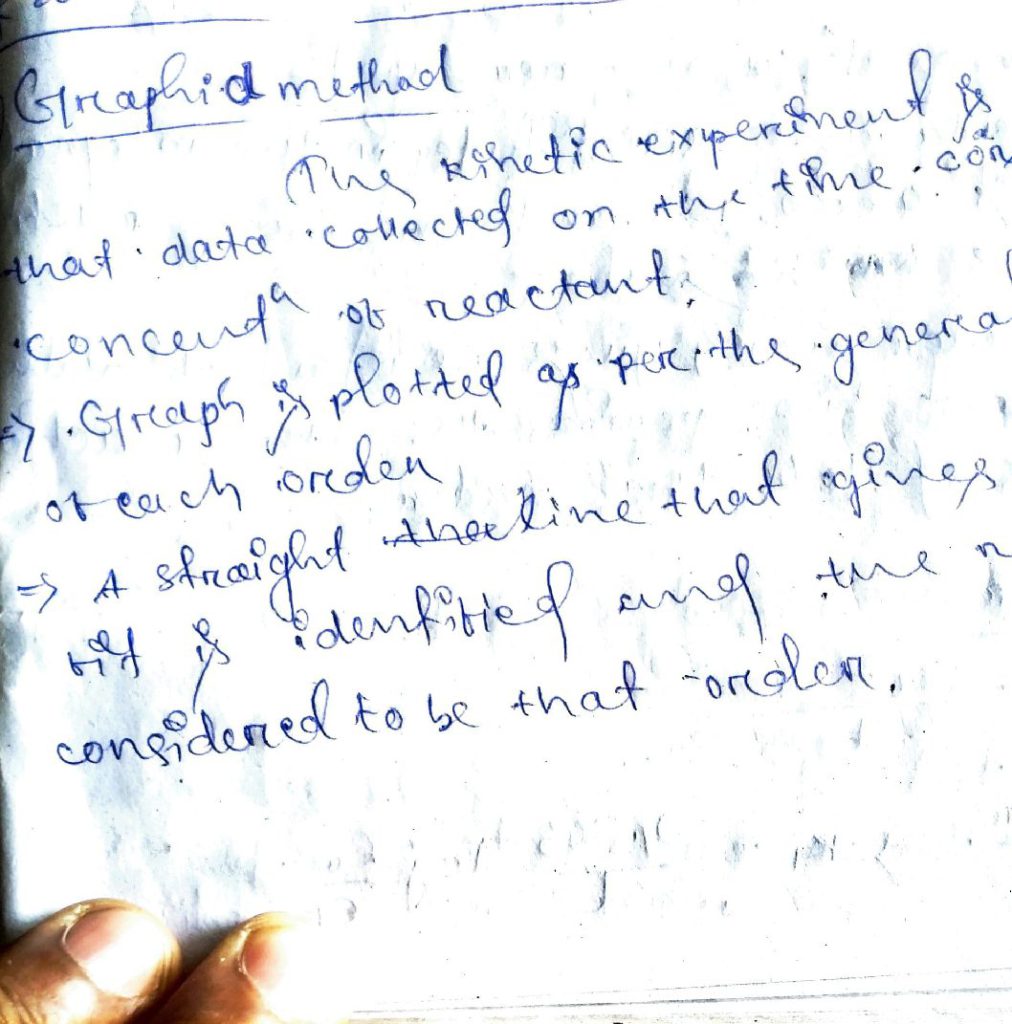 Graphical method
The kinetic experiment is
that data collected on the time. con
concent<sup>n</sup> of reactant.
=> Graph is plotted as per the genera
of each order
=> A straight line that gives
fit is identified and the
considered to be that order.